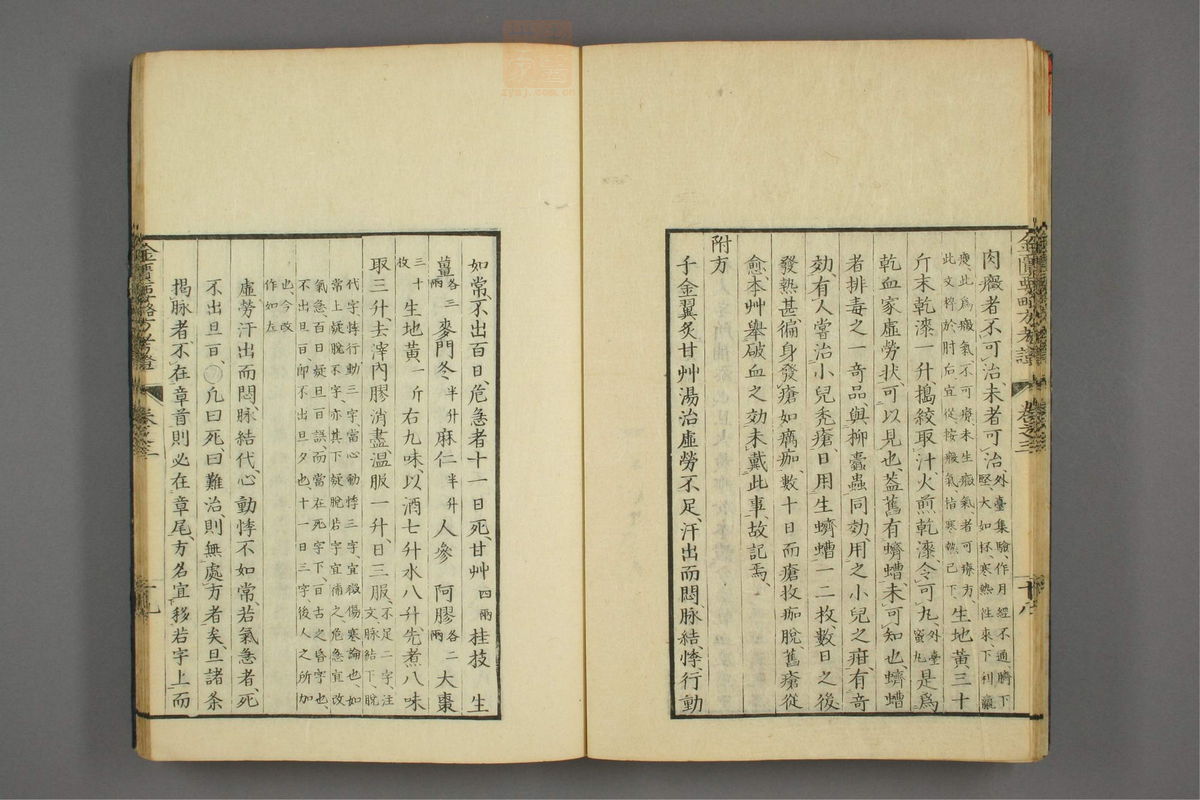 肉癥者不可治、未者可治、外臺集驗、作月經不通、臍下堅、大如杯、寒熱往來下利羸
瘦、此爲癥氣、不可療、未生癥氣者可療方、此文將於肘后宜從按癥氣指寒熱已下、生地黃三十
斤末乾漆一升、搗絞取汁、火煎乾漆、令可丸、外臺蜜丸是爲
乾血家虛勞狀、可以見也、蓋舊有蠐螬、未可知也、蠐螬
者排毒之一奇品、與柳蠹蟲同効、用之小兒之疳、有奇
効、有人嘗治小兒禿瘡、日用生蠐螬一二枚、數日之後
發熱甚、徧身發瘡如癘痂、數十日而瘡收痂脫、舊瘡從
愈、本艸舉破血之効、未載此事、故記焉、
附方
千金翼炙甘艸湯治虛勞不足、汗出而悶、脉結、悸、行動
金匱要略方考證 卷之三 十八
如常、不出百日、危急者十一日死、甘艸四兩桂技 生
薑各三兩 麥門冬半升麻仁半升 人參 阿膠各二兩 大棗
三十枚 生地黃一斤 右九味、以酒七升水八升、先煮八味
取三升、去滓、內膠消盡、温服一升、日三服、不足二字注文、脉結下脫
代字、悸行動三字、當心動悸三字、宜徴傷寒論也、如常上疑脫不字、亦其下疑脫若字宜補之、危急宜改
氣急、百日疑旦百誤而當在死字下、百古之昏字也、不出旦百、卽不出旦夕也、十一日三字後人之所加
也今改作如左
虛勞汗出而悶、脉結代、心動悸不如常、若氣急者、死
不出旦百、凡曰死曰難治、則無處方者矣、旦諸条
揭脉者、不在章首則必在章尾、方名宜移若字上而
金匱要略方考證 卷之三 十九